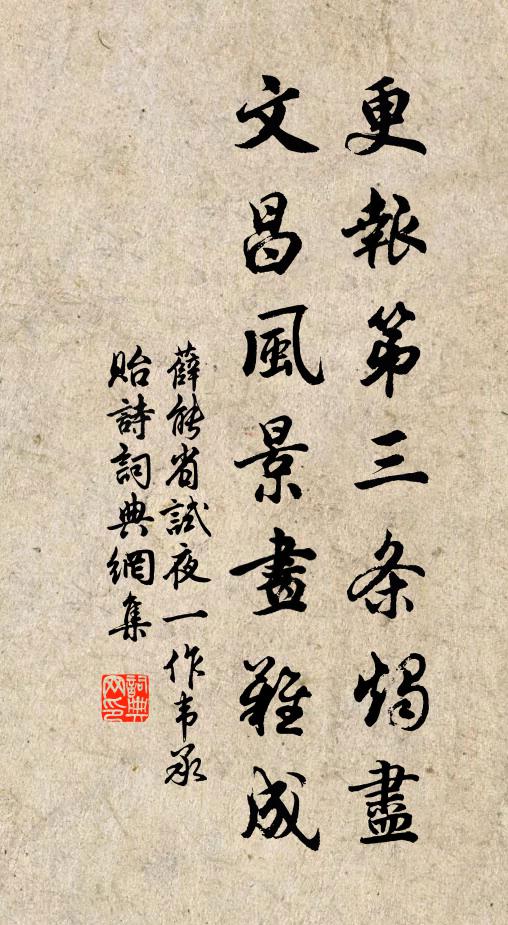 更報第三条燭盡
文昌風景畫難成
薛能省試夜一作韦承
貽詩詞典網集
詞典
网印